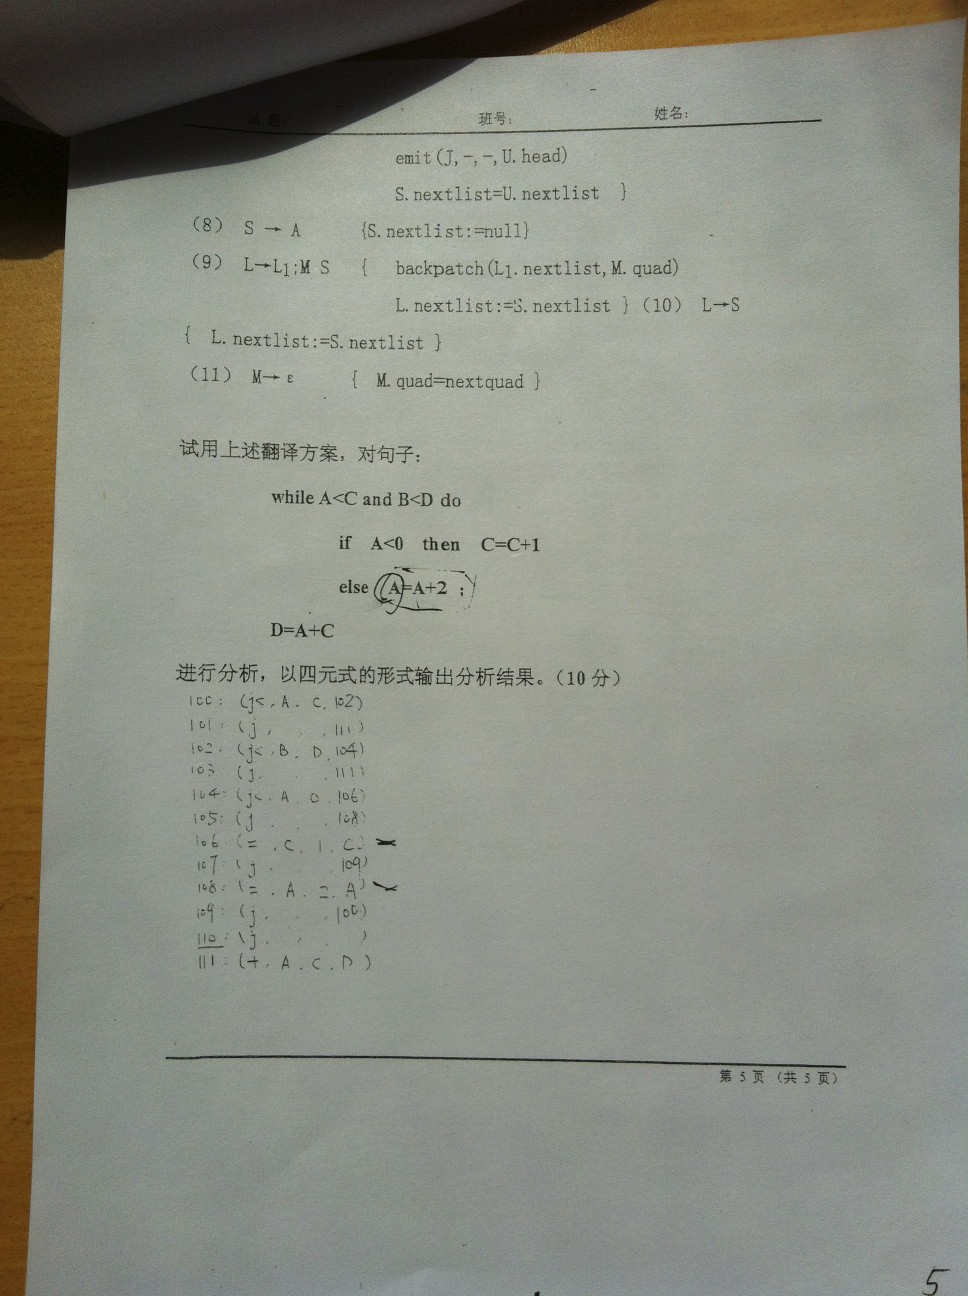 班号： 姓名：
emit(J,-,-,U.head)
S.nextlist=U.nextlist }
(8) S → A {S.nextlist:=null}
(9) L→L1;M S { backpatch(L1.nextlist,M.quad)
L.nextlist:=S.nextlist } (10) L→S
{ L.nextlist:=S.nextlist }
(11) M→ ε { M.quad=nextquad }
试用上述翻译方案，对句子：
while A<C and B<D do
if A<0 then C=C+1
else A=A+2 ;
D=A+C
进行分析，以四元式的形式输出分析结果。（10 分）
100: (j<, A, C, 102)
101: (j, , , 111)
102: (j<, B, D, 104)
103 (j, , , 111)
104: (j<, A, 0, 106)
105: (j , , , 108)
106: (= , C, 1, C)
107: (j, 109)
108: (= , A, 2, A)
109: (j, , , 100)
110: (j, , , )
111: (+, A, C, D)
第 5 页 （共 5 页）
5